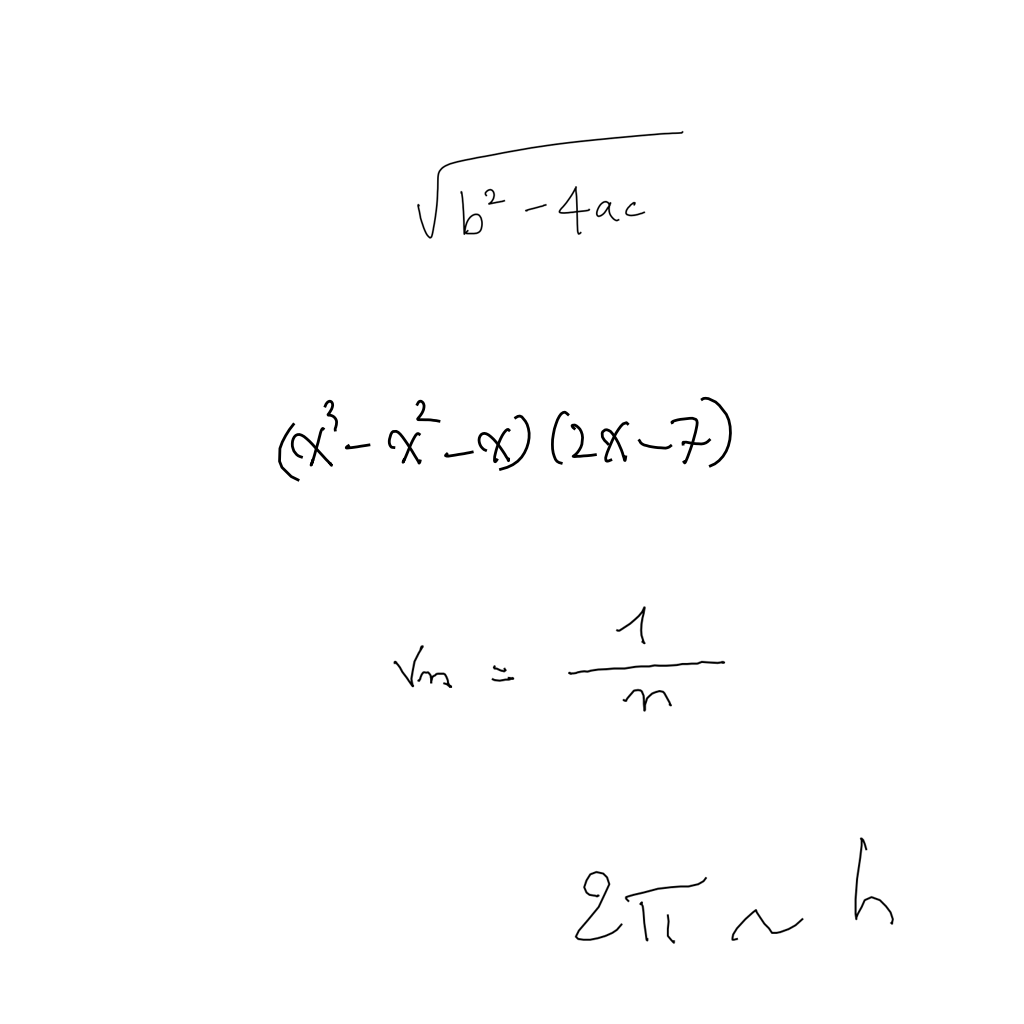 √(b² - 4ac)
(x³ - x² - x)(2x - 7)
vₙ = 1/n
2π ~ h